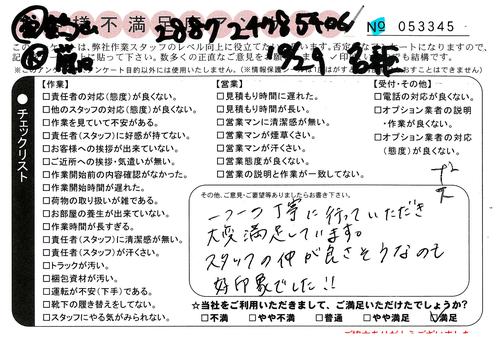 様 不 満 足 度 ア ン
28872478540
№ 053345
このアンケートは、弊社作業スタッフのレベル向上に役立てて
10/29
チェックリスト
【作業】
□責任者の対応(態度)が良くない。
□他のスタッフの対応(態度)が良くない。
□作業を見ていて不安がある。
□責任者(スタッフ)に好感が持てない。
□お客様への挨拶が出来ていない。
□ご近所への挨拶・気遣いが無い。
□作業開始前の内容確認がなかった。
□作業開始時間が遅れた。
□荷物の取り扱いが雑である。
□お部屋の養生が出来ていない。
□作業時間が長すぎる。
□責任者(スタッフ)に清潔感が無い。
□責任者(スタッフ)が汗くさい。
□トラックが汚い。
□梱包資材が汚い。
□運転が不安(下手)である。
□靴下の履き替えをしてない。
□スタッフにやる気がみられない。
【営業】
□見積もり時間に遅れた。
□見積もり時間が長い。
□営業マンに清潔感が無い。
□営業マンが煙草くさい。
□営業マンが汗くさい。
□営業態度が良くない。
□営業の説明と作業が一致してない。
【受付・その他】
□電話の対応が良くない。
□オプション業者の説明・作業が良くない。
□オプション業者の対応(態度)が良くない。
その他、ご意見・ご要望等ありましたらお書き下さい。
一つ一つ丁寧に行っていただき
大変満足しています。
スタッフの仲が良さそうなのも
好印象でした!!
☆当社をご利用いただきまして、ご満足いただけたでしょうか?
□不満 □やや不満 □普通 □やや満足 ☑満足